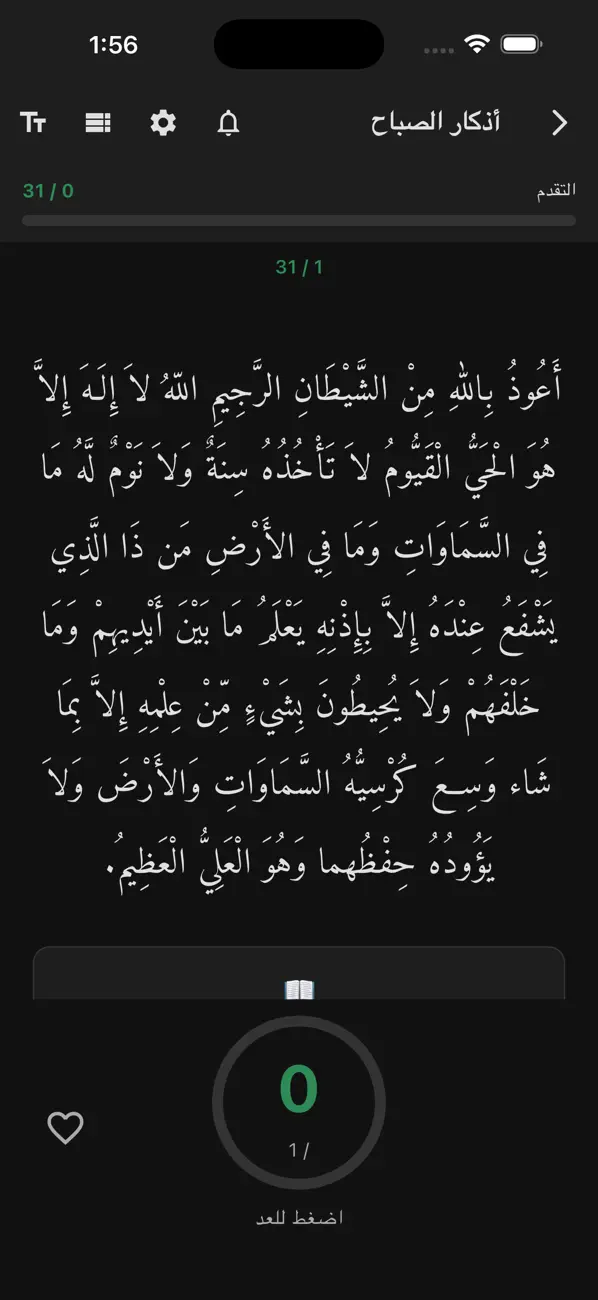 1:56
أذكار الصباح
التقدم
31 / 0
31 / 1
أَعُوذُ بِاللهِ مِنْ الشَّيْطَانِ الرَّجِيمِ اللّهُ لاَ إِلَـهَ إِلاَّ
هُوَ الْحَيُّ الْقَيُّومُ لاَ تَأْخُذُهُ سِنَةٌ وَلاَ نَوْمٌ لَّهُ مَا
فِي السَّمَاوَاتِ وَمَا فِي الأَرْضِ مَن ذَا الَّذِي
يَشْفَعُ عِنْدَهُ إِلاَّ بِإِذْنِهِ يَعْلَمُ مَا بَيْنَ أَيْدِيهِمْ وَمَا
خَلْفَهُمْ وَلاَ يُحِيطُونَ بِشَيْءٍ مِّنْ عِلْمِهِ إِلاَّ بِمَا
شَاء وَسِعَ كُرْسِيُّهُ السَّمَاوَاتِ وَالأَرْضَ وَلاَ
يَؤُودُهُ حِفْظُهما وَهُوَ الْعَلِيُّ الْعَظِيمُ.
0
1 /
اضغط للعد